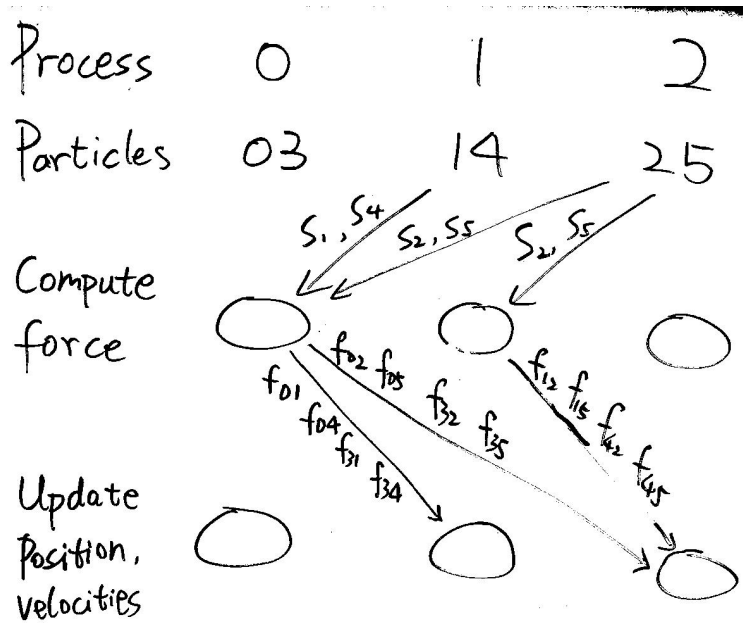 Process 0 1 2
Particles 03 14 25
S1, S4 S2, S5 S2, S5
Compute
force
f02 f05 f32 f35
f01 f04 f31 f34
f12 f15 f42 f45
Update
Position,
velocities